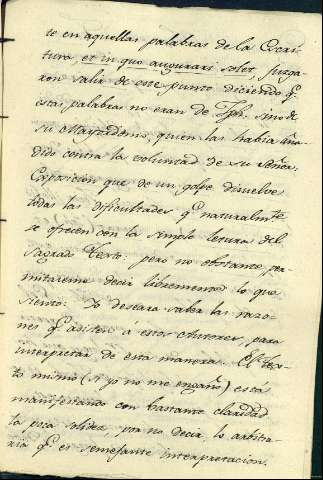 te en aquellas palabras de la Escri-
tura et in quo augurari solet, juzga-
ron salir de este punto diciendo q.e
estas palabras no eran de Jph. sino de
su Mayordomo, quien las había aña-
dido contra la voluntad de su señor:
Exposicion que de un golpe disuelve
todas las dificultades q.e naturalmte.
se ofrecen con la simple letura del
Sagrado Texto. pero no obstante, per-
mitaseme decir libremente lo que
siento: Yo deseara saber las razo-
nes q.e asisten à estos Autores, para
interpretar de esta manera. El tex-
to mismo (si yo no me engaño) está
manifestando con bastante claridad
la poca solidez, por no decir, lo arbitra-
rio q.e es semejante interpretacion.